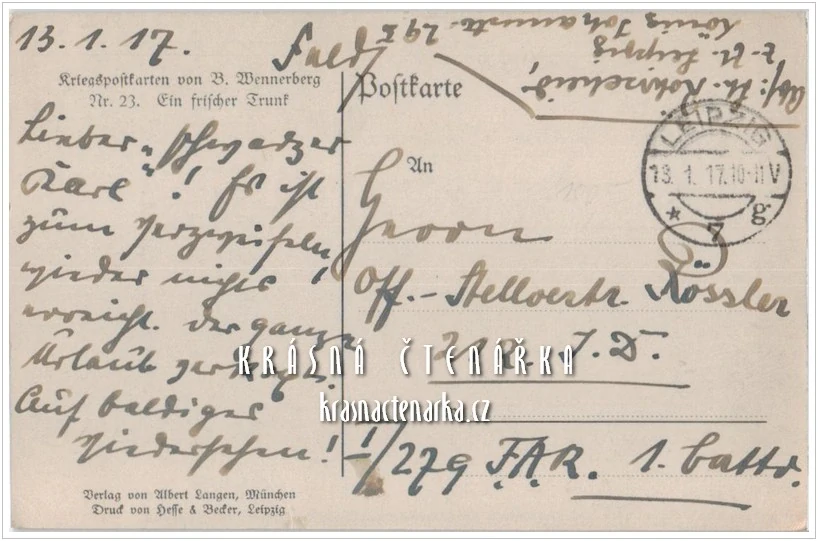 13.1.17.
Kriegspostkarten von B. Wennerberg
Nr. 23. Ein frischer Trunk
Lieber „schwarzer
Karl“! Es ist
zum Verzweifeln,
wieder nichts
erreicht. Der ganze
Urlaub
Auf baldiges
Wiedersehen!
Verlag von Albert Langen, München
Druck von Hesse & Becker, Leipzig
Feld
Postkarte
Abs: Th.
z. Zt. Leipzig
König Johannstr. 29 I
LEIPZIG
13. 1. 17. 10-11 V
* 7 g
An
Herrn
Off.-Stellvertr. Rössler
I. D.
1/279 F.A.R. 1. Battr.
KRÁSNÁ ČTENÁŘKA
krasnactenarka.cz